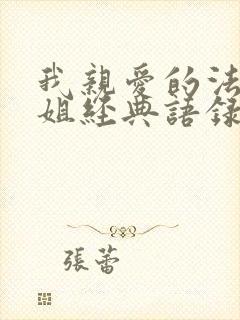 我親愛的法
姐經典語錄
張蕾